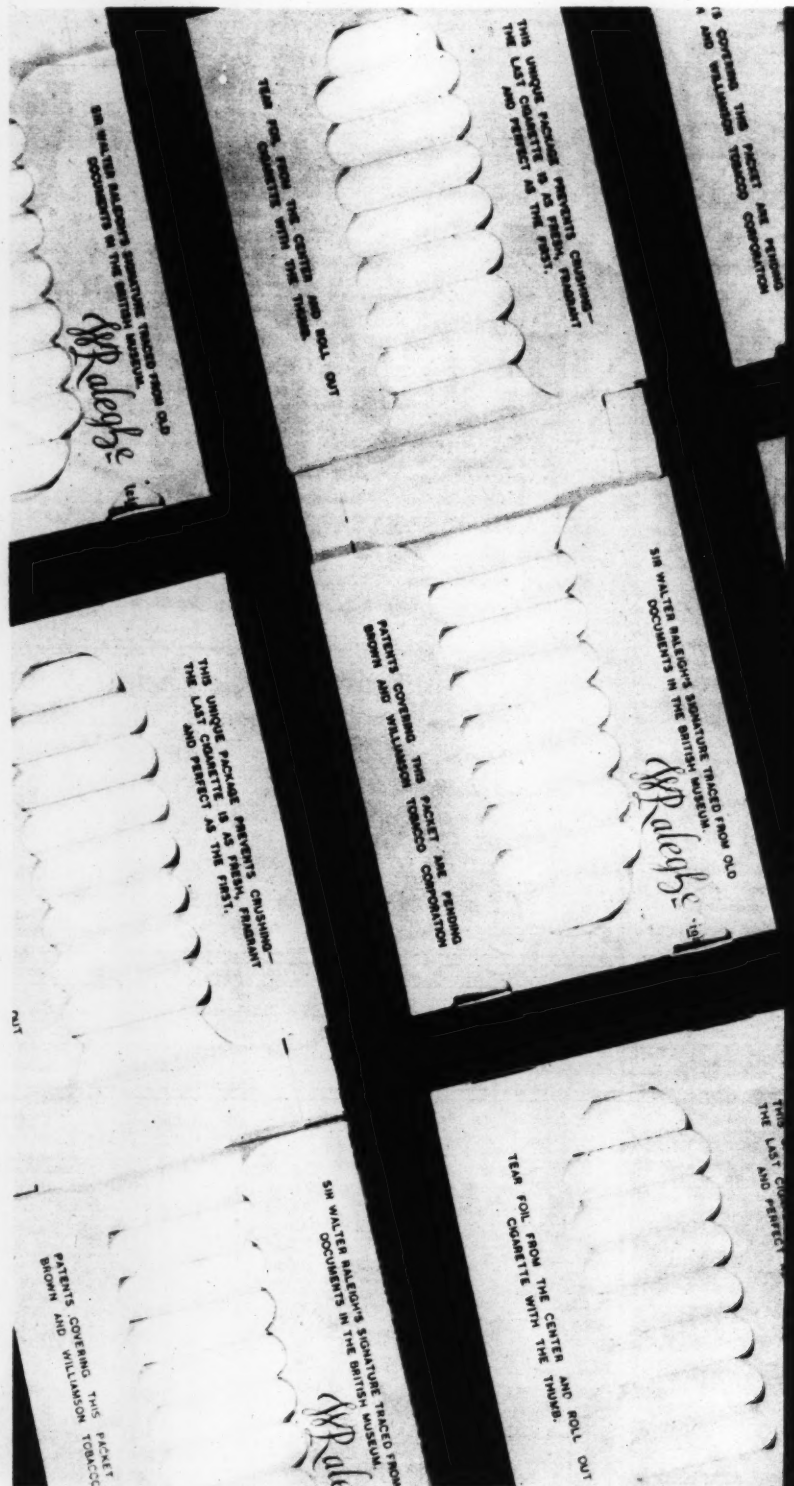 SIR WALTER RALEIGH'S SIGNATURE TRACED FROM OLD
DOCUMENTS IN THE BRITISH MUSEUM.
WRaleghe
THIS UNIQUE PACKAGE PREVENTS CRUSHING—
THE LAST CIGARETTE IS AS FRESH, FRAGRANT
AND PERFECT AS THE FIRST.
TEAR FOIL FROM THE CENTER AND ROLL OUT
CIGARETTE WITH THE THUMB.
COVERING THIS PACKET ARE PENDING
AND WILLIAMSON TOBACCO CORPORATION
SIR WALTER RALEIGH'S SIGNATURE TRACED FROM OLD
DOCUMENTS IN THE BRITISH MUSEUM.
WRaleghe
PATENTS COVERING THIS PACKET ARE PENDING
BROWN AND WILLIAMSON TOBACCO CORPORATION
THIS UNIQUE PACKAGE PREVENTS CRUSHING—
THE LAST CIGARETTE IS AS FRESH, FRAGRANT
AND PERFECT AS THE FIRST.
OUT
SIR WALTER RALEIGH'S SIGNATURE TRACED FROM
DOCUMENTS IN THE BRITISH MUSEUM.
WRale
PATENTS COVERING THIS PACKET
BROWN AND WILLIAMSON TOBACCO
THIS
THE LAST
AND PERFECT
TEAR FOIL FROM THE CENTER AND ROLL OUT
CIGARETTE WITH THE THUMB.